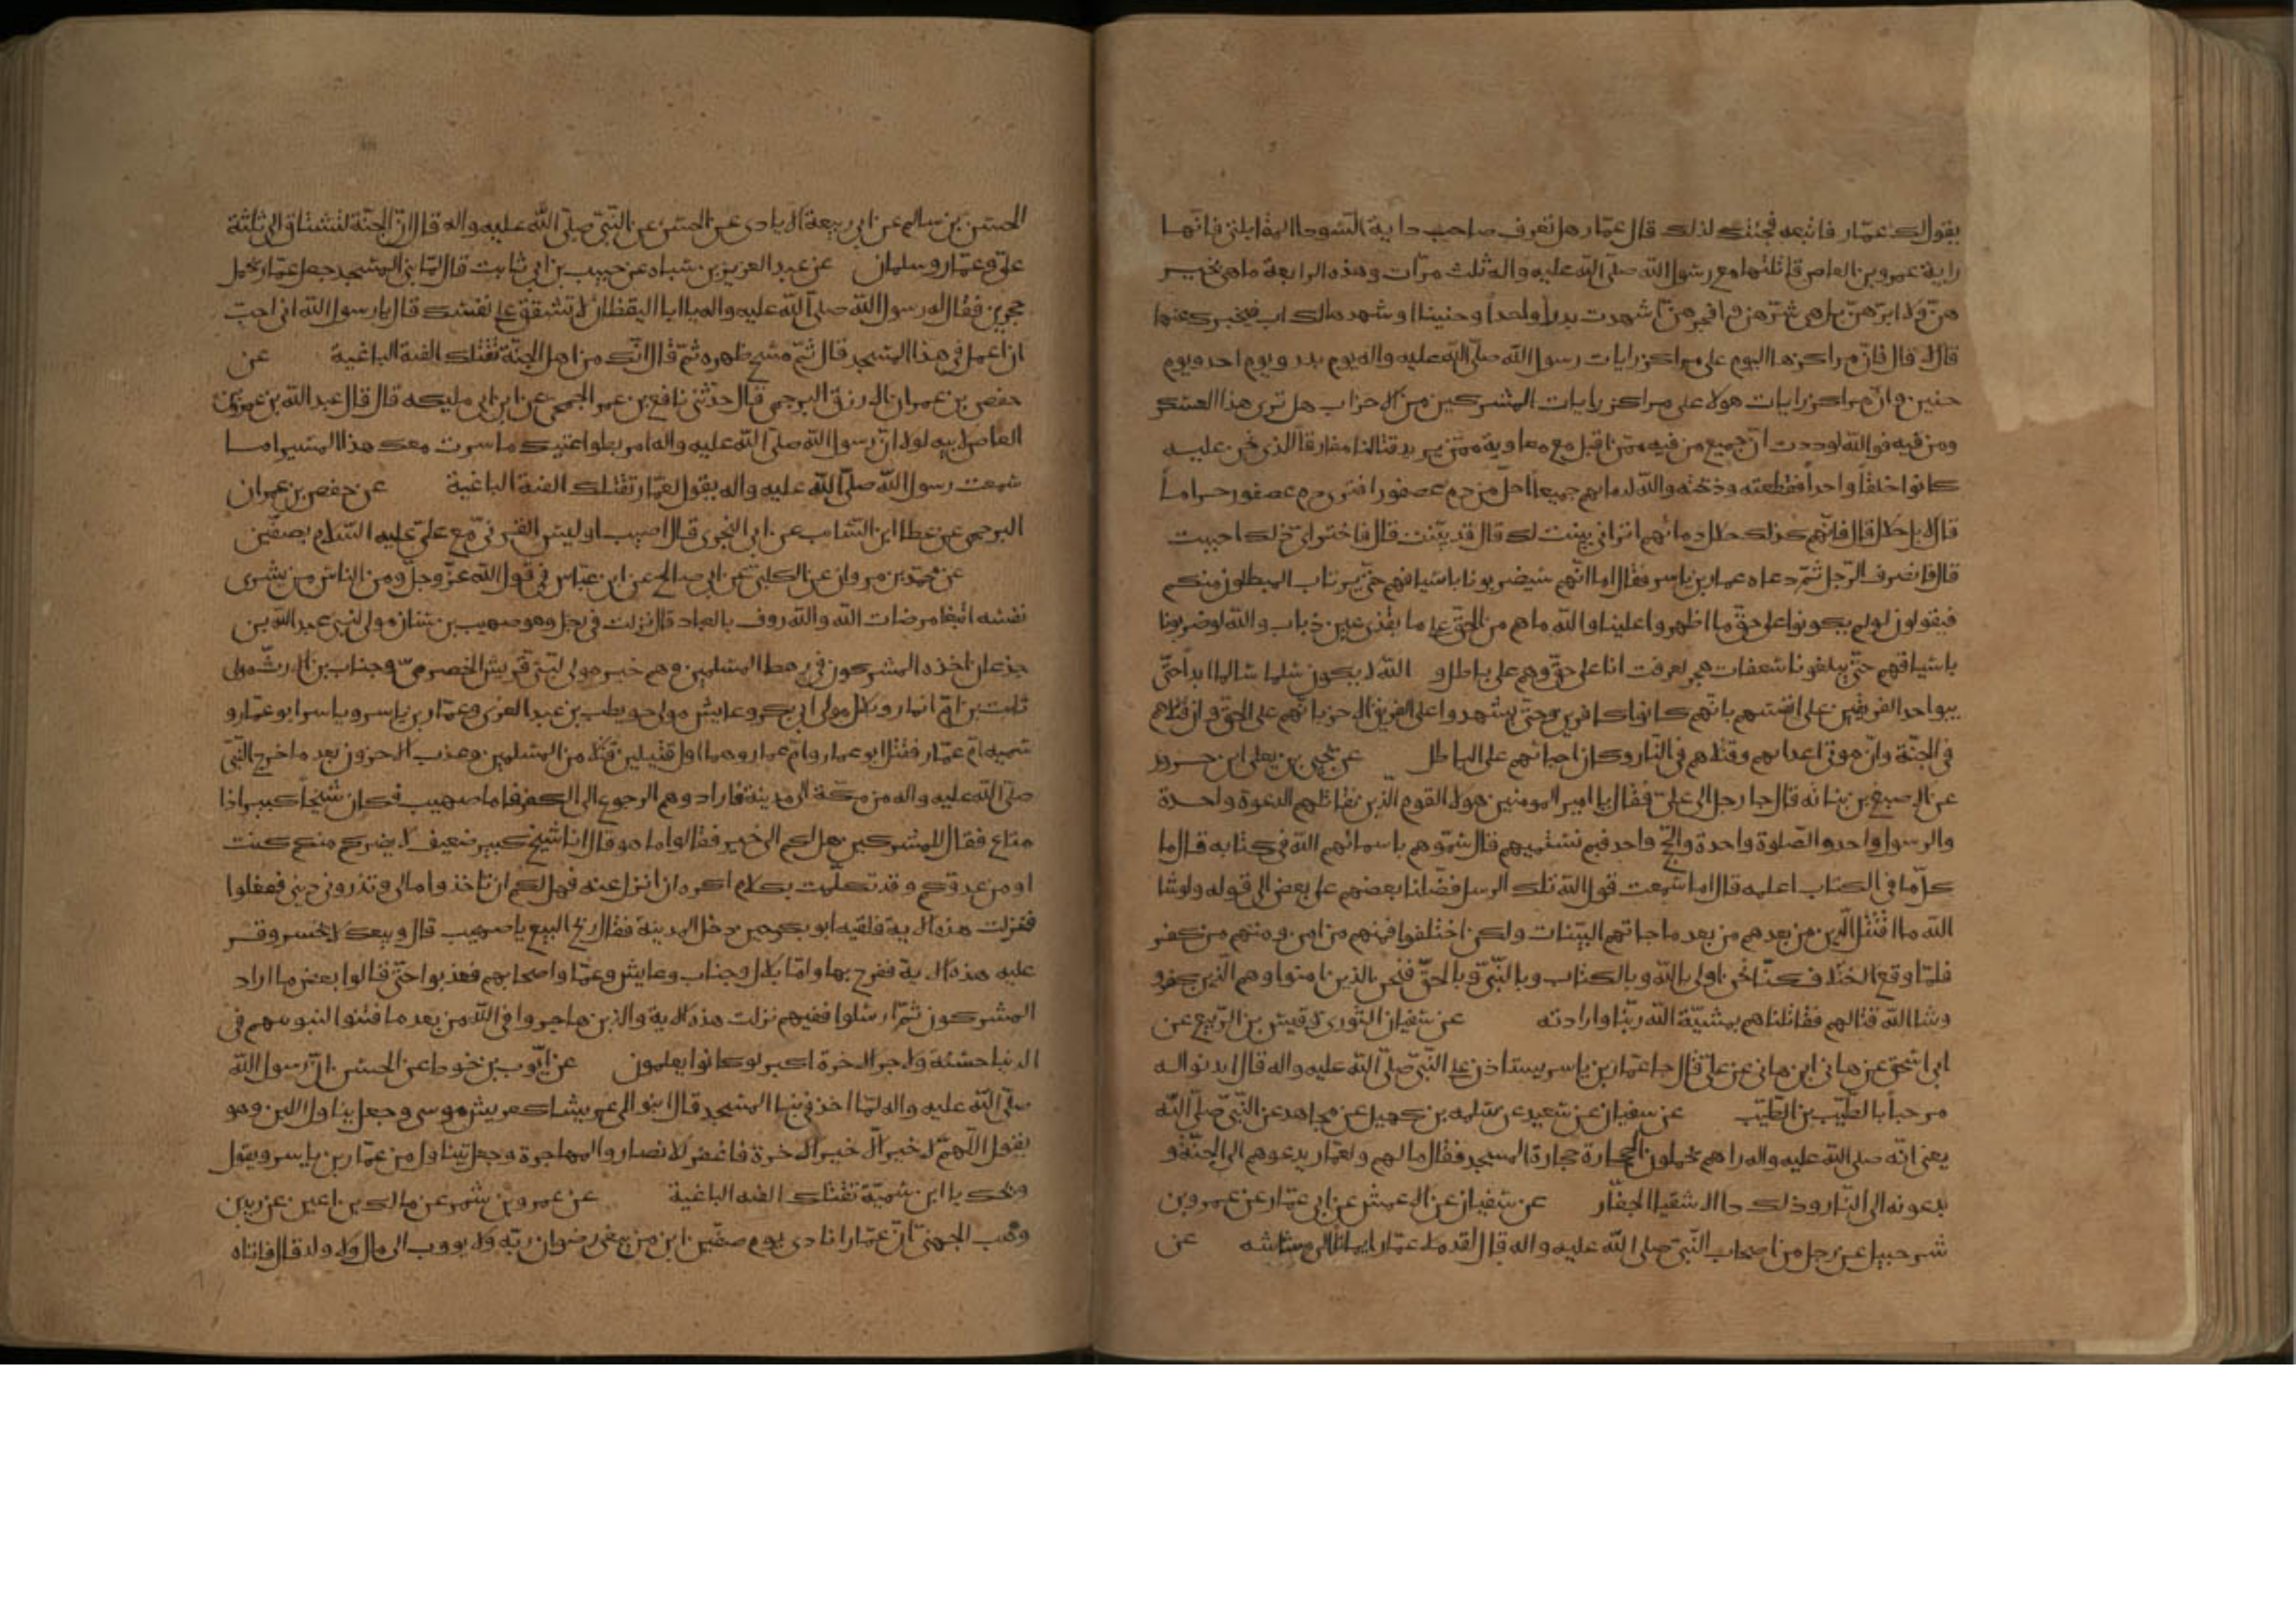 يقول لك عمار فاتبعه فجئتك لذلك قال عمّار هل تعرف صاحب راية السّودا المقابلتى فانّها
راية عمرو بن العاص قاتلتها مع رسول الله صلّى الله عليه واله ثلث مرّات وهذه الرابعة ماهى بخير
هنّ ولا ابرّهنّ بل هى شرّهنّ وافجرهنّ اشهدت بدراً واحداً وحنينا او شهدها لك اب فيخبرك عنها
قال لا قال فانّ مراكزها اليوم على مراكز رايات رسول الله صلّى الله عليه واله يوم بدر ويوم احد ويوم
حنين وانّ مراكز رايات هولا على مراكز رايات المشركين من الاحزاب هل ترى هذا العسكر
ومن فيه فوالله لوددت انّ جميع من فيه ممّن اقبل مع معاوية ممّن يريد قتالنا مفارقاً للذى نحن عليه
كانوا خلقاً واحداً فقطعته وذبحته والله لدماءهم جميعاً احلّ من دم عصفور افترى دم عصفور حراماً
قال لا بل حلال قال فانّهم كذلك حلال دمائهم اترانى بيّنت لك قال قد بيّنت قال فاختر اىّ ذلك احببت
قال فانصرف الرّجل ثمّ دعاه عمار بن ياسر فقال اما انّهم سيضربونا باسيافهم حتّى يرتاب المبطلون منكم
فيقولون لو لم يكونوا على حقّ ما اظهروا علينا والله ما هم من الحقّ على ما يقذى عين ذباب والله لو ضربونا
باسيافهم حتّى يبلغونا سعفات هجر لعرفت انا على حقّ وهم على باطل و الله لا يكون سلما سالما ابداً حتّى
يبوا احد الفريقين على انفسهم بانّهم كانوا كافرين وحتّى يشهدوا على الفريق الاخر بانّهم على الحقّ وان قتلاهم
فى الجنّة وانّ موتى اعدائهم وقتلاهم فى النّار وكان احيائهم على الباطل عن يحيى بن يعلى ابن حزور
عن الاصبغ بن نباته قال جا رجل الى علىّ فقال يا امير المومنين هولا القوم الّذين نقاتلهم الدعوة واحدة
والرسول واحد والصّلوة واحدة والحجّ واحد فبم نسمّيهم قال سمّوهم باسمائهم الله فى كتابه قال ما
كلّ ما فى الكتاب اعلمه قال اما سمعت قول الله تلك الرسل فضّلنا بعضهم على بعض الى قوله ولو شا
الله ما اقتتل الّذين من بعدهم من بعد ما جاتهم البيّنات ولكن اختلفوا فمنهم من امن ومنهم من كفر
فلمّا وقع اختلاف كنّا نحن اولى بالله وبالكتاب وبالنّبىّ وبالحقّ فنحن الذين امنوا وهم الّذين كفرو
وشا الله قتالهم فقاتلناهم بمشيّة الله ربّنا وارادته عن سفيان الثّورى وقيس بن الرّبيع عن
ابى اسحق عن هانى ابن هانى عن على قال جا عمّار بن ياسر يستاذن على النّبىّ صلّى الله عليه واله قال ايذنوا له
مرحباً بالطّيّب بن الطّيّب عن سفيان عن سعيد عن سلمه بن كهيل عن مجاهد عن النّبىّ صلّى الله
يعنى انّه صلى الله عليه واله راهم يحملون الحجارة حجارة المسجد فقال ما لهم ولعمّار يدعوهم الى الجنّة و
يدعونه الى النّار وذلك دا الاشقيا الفجّار عن سفيان عن الاعمش عن ابى عمّار عن عمرو بن
شرحبيل عن رجل من اصحاب النّبىّ صلى الله عليه واله قال لقد ملا عمّار ايماناً الى مشاشه عن
الحسن بن سالم عن ابى ربيعة الايادى عن الحسن عن النّبىّ صلّى الله عليه واله قال انّ الجنّة لتشتاق الى ثلثة
علىّ وعمّار وسلمان عن عبد العزيز بن سياه عن حبيب بن ابى ثابت قال لمّا بنى المسجد جعل عمّار يحمل
حجرين فقال له رسول الله صلّى الله عليه واله يا ابا اليقظان لا تشقق على نفسك قال يا رسول الله انى احبّ
ان اعمل فى هذا المسجد قال ثمّ مسح ظهره ثمّ قال انّك من اهل الجنّة تقتلك الفئة الباغية عن
حفص بن عمران الازرق البرجمى قال حدّثنى نافع بن عمر الجمحى عن ابن ابى مليكه قال قال عبد الله بن عمرو بن
العاص لابيه لولا انّ رسول الله صلّى الله عليه واله امر بطواعيتك ما سرت معك هذا المسير اما
سمعت رسول الله صلّى الله عليه واله يقول لعمّار تقتلك الفئة الباغية عن حفص بن عمران
البرجمى عن عطا ابن السّائب عن ابى البخترى قال اصيب اويس القرنىّ مع علىّ عليه السّلام بصفّين
عن محمّد بن مروان عن الكلبىّ عن ابى صالح عن ابن عبّاس فى قول الله عزّ وجلّ ومن الناس من يشرى
نفسه ابتغا مرضات الله والله روف بالعباد قال نزلت فى رجل وهو صهيب بن سنان مولى لبنى عبد الله بن
جذعان اخذه المشركون فى رهط المسلمين وهم خير مولى لبنى قريش الحضرمىّ وخباب بن الارتّ مولى
ثابت بن امّ انمار وبلال مولى ابى بكر وعايش مولى حويطب بن عبد العزى وعمّار بن ياسر وياسر ابو عمّار و
سميه امّ عمّار فقتل ابو عمار وامّ عمار وهما اول قتيلين قتلا من المسلمين وعذب الاخرون بعد ما خرج النّبىّ
صلّى الله عليه واله من مكّة الى مدينة فارادوهم الرجوع الى الكفر فاما صهيب فكان شيخاً كبيرا ذا
متاع فقال للمشركين هل لكم الى خير فقالوا ما هو قال انا شيخ كبير ضعيف لا يضركم منكم كنت
او من عدوّكم وقد تكلّمت بكلام اكره ان انزل عنه فهل لكم ان تاخذوا مالى وتذرونى ودينى ففعلوا
فنزلت هذه الاية فلقيه ابو بكر حين دخل المدينة فقال ربح البيع يا صهيب قال وبيعك لا يخسر وقر
عليه هذه الاية ففرح بها وامّا بلال وخباب وعايش وعمّار واصحابهم فعذبوا حتّى قالوا بعض ما اراد
المشركون ثمّ ارسلوا ففيهم نزلت هذه الاية والذين هاجروا فى الله من بعد ما فتنوا لنبوئنهم فى
الدنيا حسنة ولاجر الاخرة اكبر لو كانوا يعلمون عن ايّوب بن خوط عن الحسن انّ رسول الله
صلّى الله عليه واله لمّا اخذ فى بنا المسجد قال ابنوا لى عريشا كعريش موسى وجعل يناول اللبن وهو
يقول اللّهمّ لا خير الّا خير الاخرة فاغفر للانصار والمهاجرة وجعل يتناول من عمّار بن ياسر ويقول
ويحك يا ابن سميّة تقتلك الفئه الباغية عن عمرو بن شمر عن مالك بن اعين عن زيد بن
وهب الجهنىّ انّ عمّار انادى يوم صفّين اين من يبغى رضوان ربّه ولا يووب الى مال ولا ولد قال فاتاه